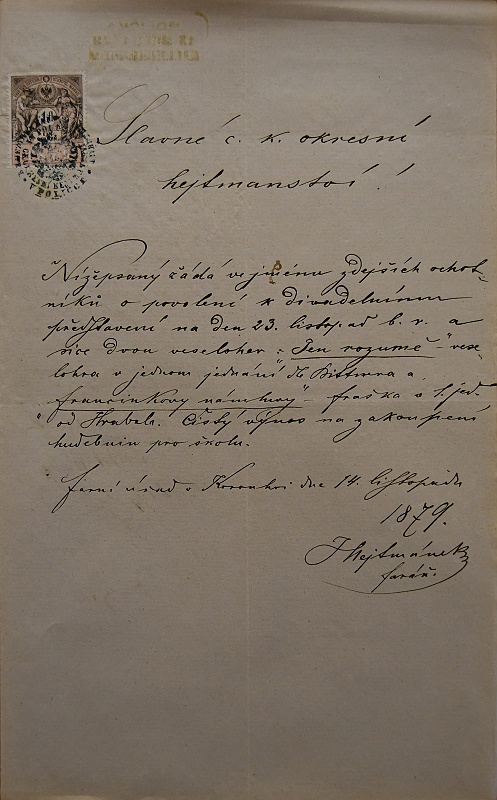 Slavné c. k. okresní
hejtmanství!
Nížepsaný žádá ve jménu zdejších ochot-
níků o povolení k divadelnímu
představení na den 23. listopad b. r. a
sice dvou veseloher: „Jen rozumě“ vese-
lohra v jednom jednání
„Francinkovy námluvy“ – fraška v 1. jed.
od Hrabala. Čistý výnos na zakoupení
hudebnin pro školu.
Farní úřad v dne 14. listopadu
1879.
J Hejtmánek
farář.